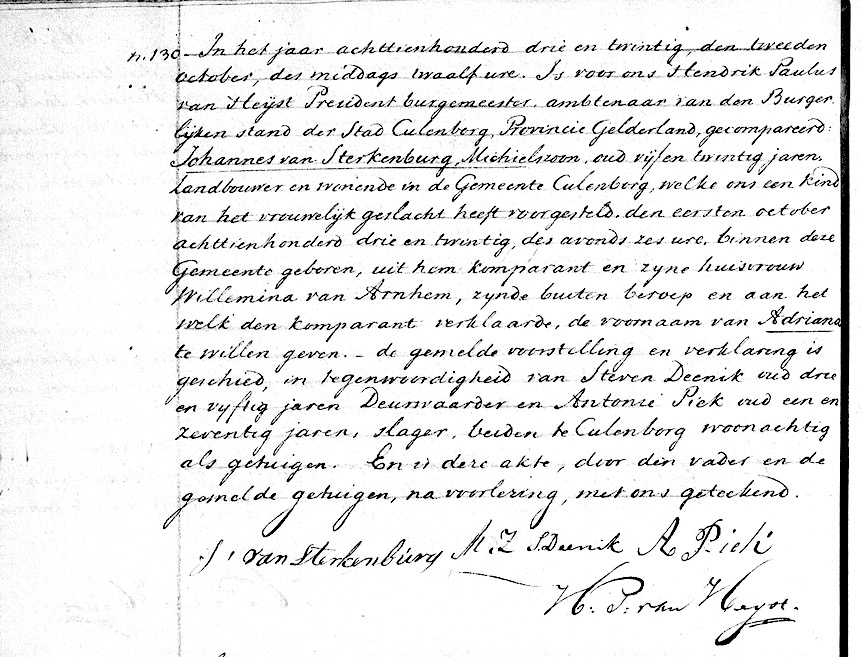 n. 130 - In het jaar achttienhonderd drie en twintig, den tweeden
october, des middags twaalf ure. Is voor ons Hendrik Paulus
van Heijst President burgemeester. ambtenaar van den Burger
lijken stand der Stad Culenborg, Provincie Gelderland, gecompareerd:
Johannes van Sterkenburg, Michielzoon, oud vijf en twintig jaren.
Landbouwer en wonende in de Gemeente Culenborg, welke ons een kind
van het vrouwelijk geslacht heeft voorgesteld. den eersten october
achttienhonderd drie en twintig, des avonds zes ure. binnen deze
Gemeente geboren, uit hem komparant en zyne huisvrouw
Willemina van Arnhem, zynde buiten beroep en aan het
welk den komparant verklaarde, de voornaam van Adriana
te willen geven. - de gemelde voorstelling en verklaring is
geschied, in tegenwoordigheid van Steven Deenik oud drie
en vyftig jaren Deurwaarder en Antonie Piek oud een en
zeventig jaren, slager. beiden te Culenborg woonachtig
als getuigen. En is deze akte, door den vader en de
gemelde getuigen, na voorlezing, met ons geteekend.
J. van Sterkenburg M. Z S. Deenik A Piek
H. P. van Heyst.